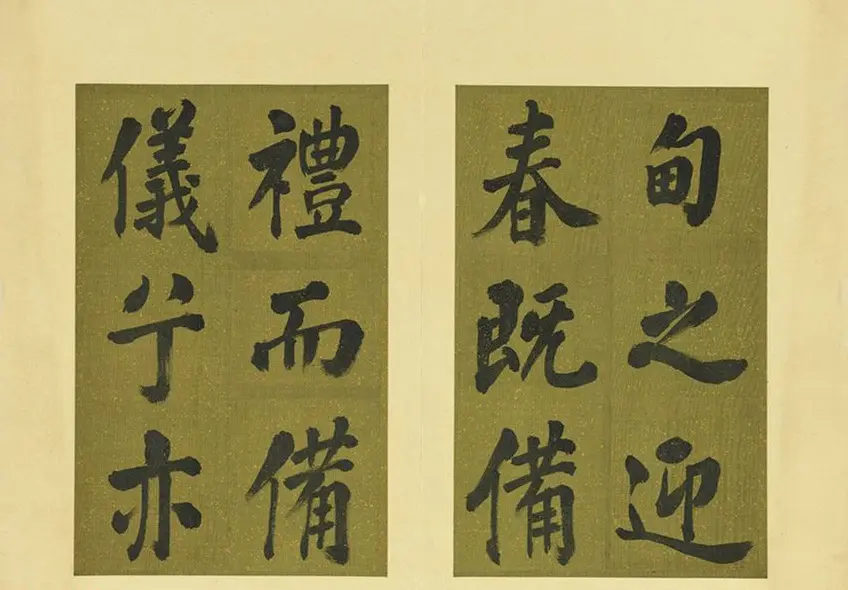 甸之迎
春既備
禮而備
儀兮亦